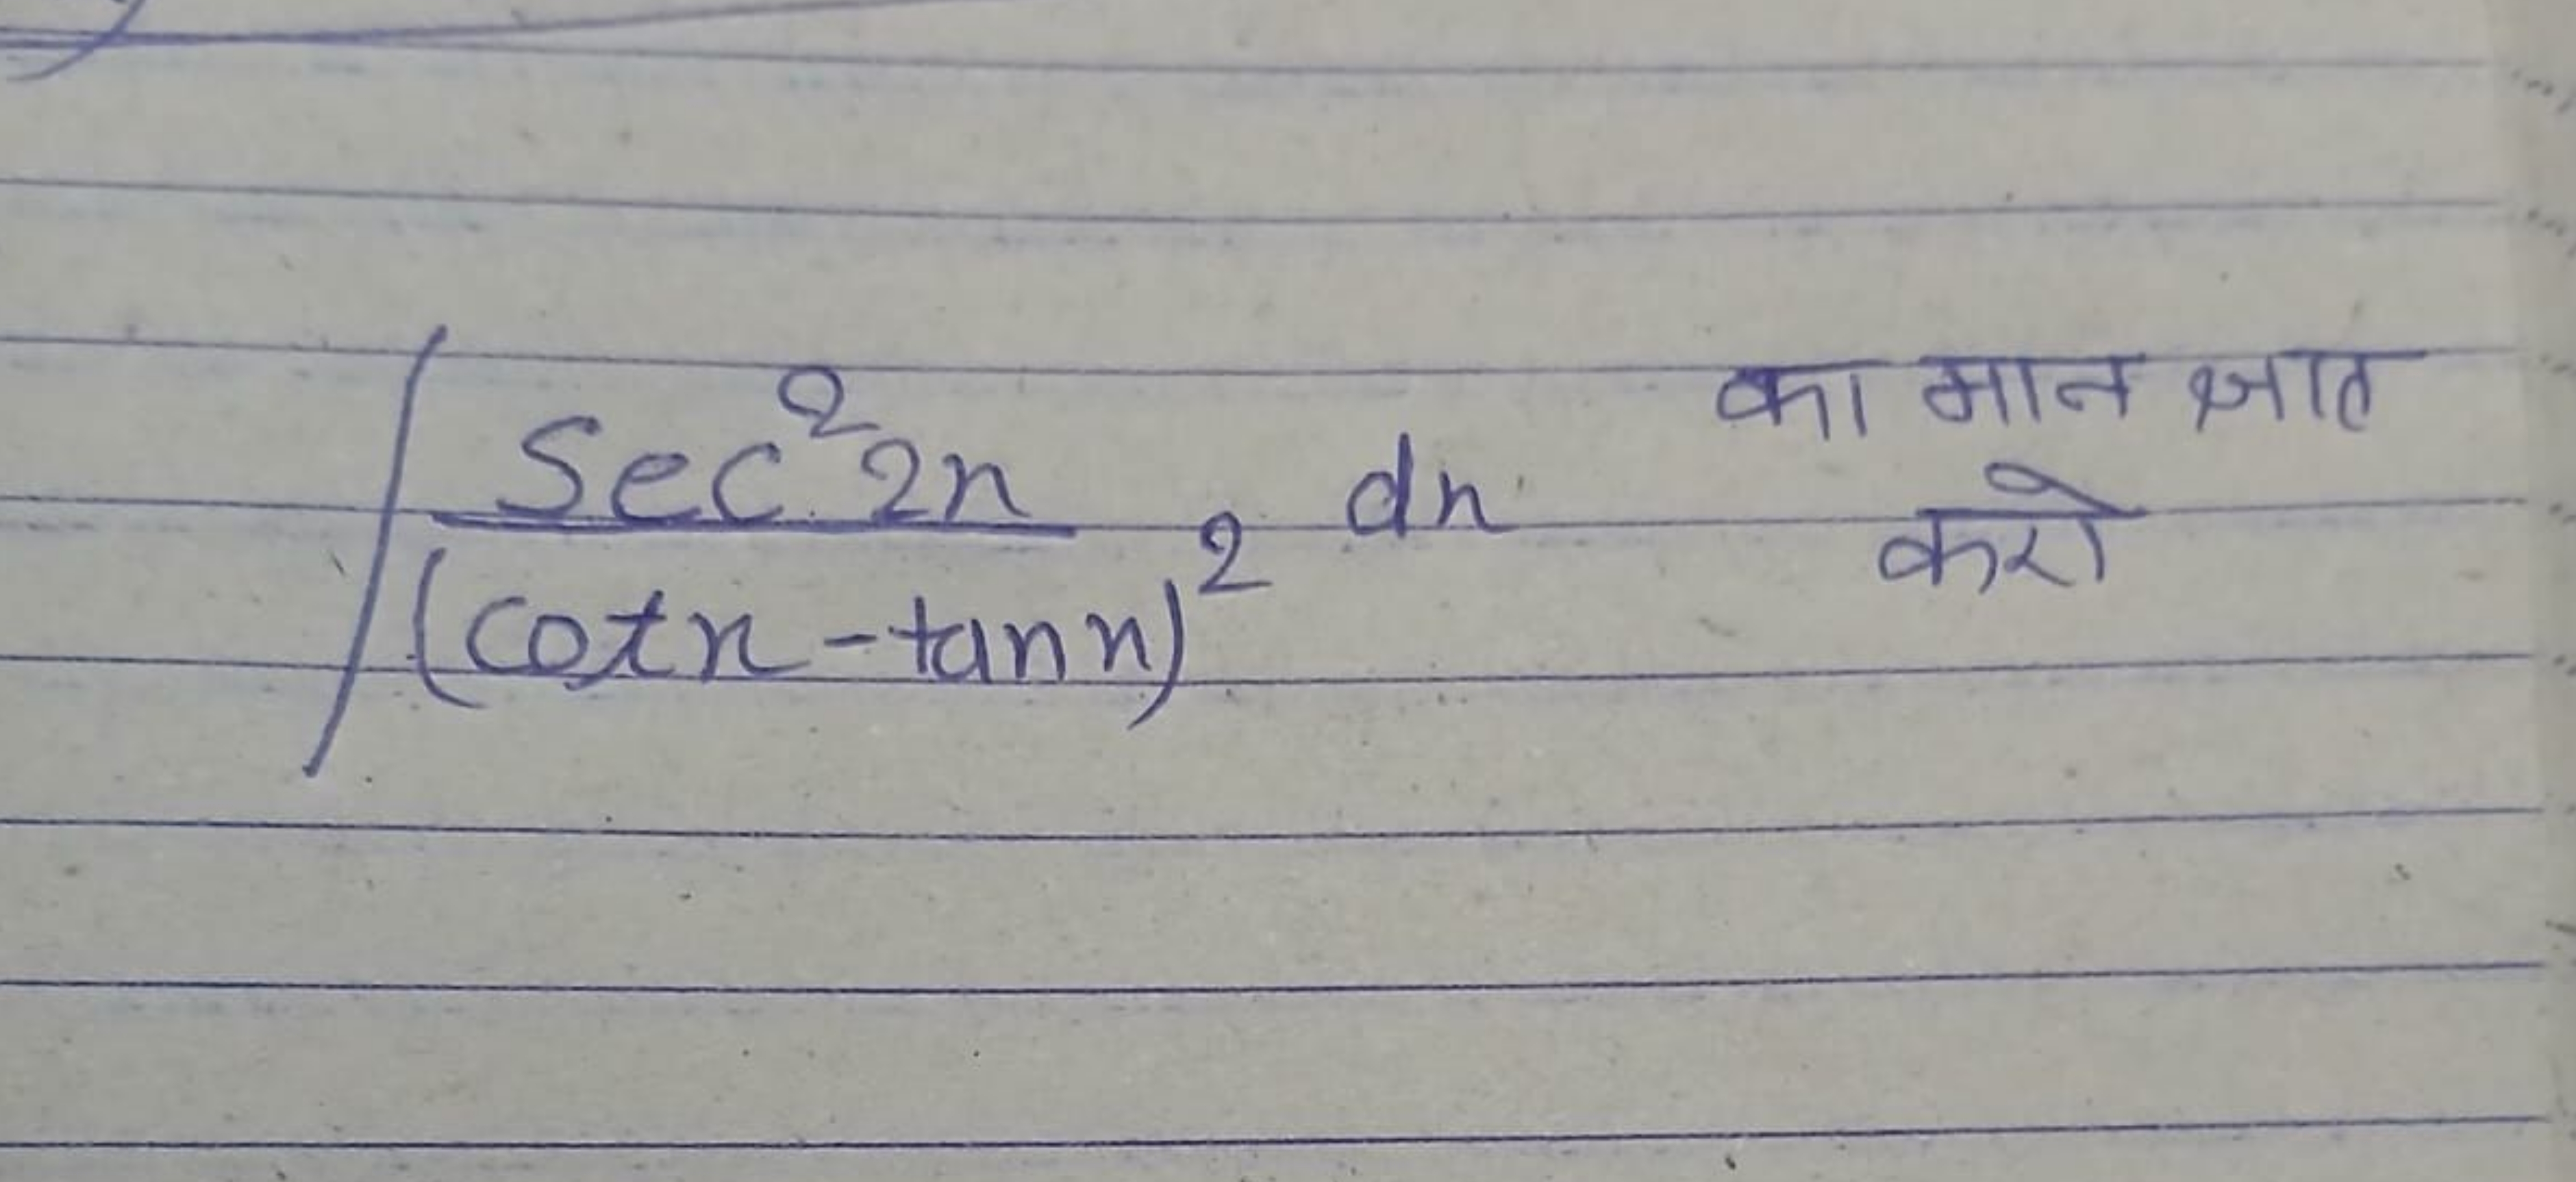 ∫ Sec²2n / (cotn - tann)² dn का मान ज्ञात
करो